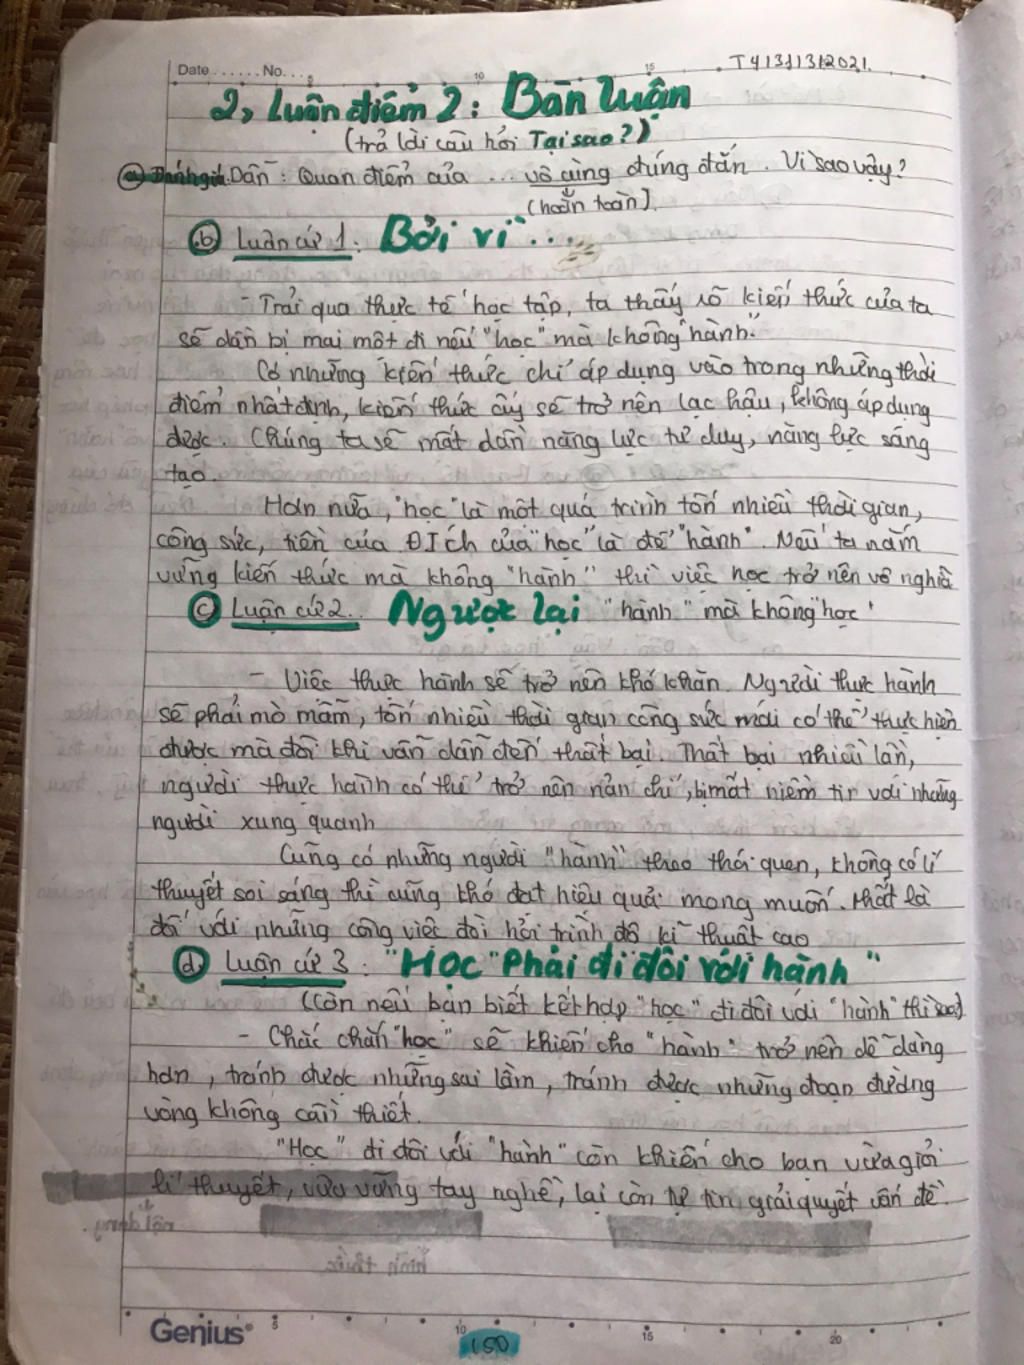 Date ...... No. ...
5 10 15
T4|31|3|2021.
2, Luận điểm 2: Bàn luận
(trả lời câu hỏi Tại sao?)
a) Đánh giá. Dẫn: Quan điểm của ... vô cùng đúng đắn. Vì sao vậy?
(hoàn toàn)
b) Luận cứ 1: Bởi vì ...
- Trải qua thực tế học tập, ta thấy rõ kiến thức của ta
sẽ dần bị mai một đi nếu "học" mà không "hành".
Có những kiến thức chỉ áp dụng vào trong những thời
điểm nhất định, kiến thức ấy sẽ trở nên lạc hậu, không áp dụng
được. Chúng ta sẽ mất dần năng lực tư duy, năng lực sáng
tạo.
Hơn nữa, "học" là một quá trình tốn nhiều thời gian,
công sức, tiền của ĐÍch của "học" là để "hành". Nếu ta nắm
vững kiến thức mà không "hành" thì việc học trở nên vô nghĩa
c) Luận cứ 2. Ngược lại "hành" mà không "học"
- Việc thực hành sẽ trở nên khó khăn. Người thực hành
sẽ phải mò mẫm, tốn nhiều thời gian công sức mới có thể thực hiện
được mà đôi khi vẫn dẫn đến thất bại. Thất bại nhiều lần,
người thực hành có thể trở nên nản chí, bị mất niềm tin với những
người xung quanh
Cũng có những người "hành" theo thói quen, không có lí
thuyết soi sáng thì cũng khó đạt hiệu quả mong muốn. Nhất là
đối với những công việc đòi hỏi trình độ kĩ thuật cao
d) Luận cứ 3: "Học" Phải đi đôi với hành"
(Còn nếu bạn biết kết hợp "học" đi đôi với "hành" thì sao)
- Chắc chắn "học" sẽ khiến cho "hành" trở nên dễ dàng
hơn, tránh được những sai lầm, tránh được những đoạn đường
vòng không cần thiết.
"Học" đi đôi với "hành" còn khiến cho bạn vừa giỏi
lí thuyết, vừa vững tay nghề, lại còn tự tin giải quyết vấn đề.
Genius
5 10 15 20
150